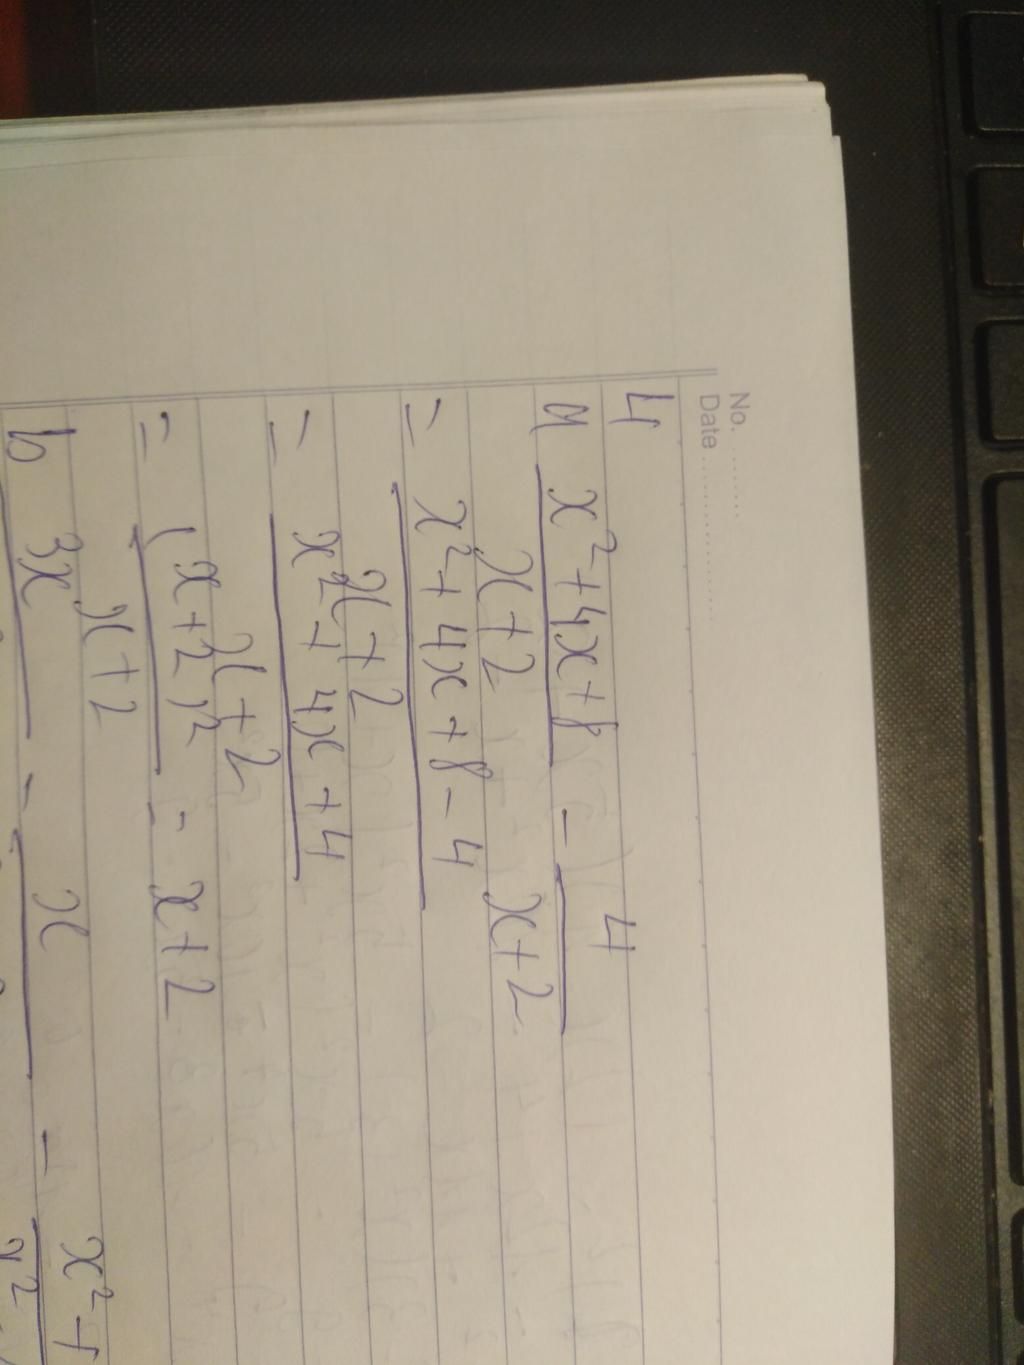 No. .........
Date ......................
4
a x²+4x+8 / x+2 - 4 / x+2
= x²+4x+8-4 / x+2
= x²+4x+4 / x+2
= (x+2)² / x+2 = x+2
b 3x - x - x²+
x²